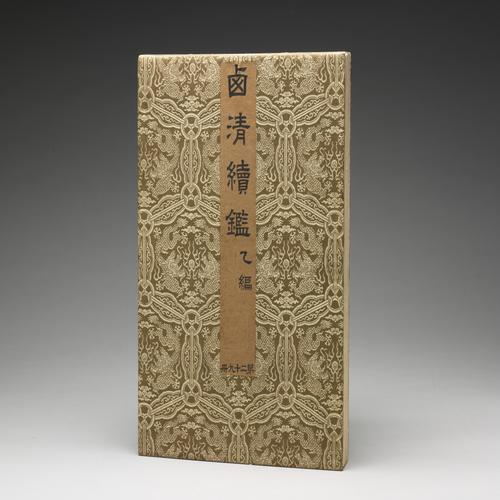 鹵清續鑑乙編
第二十九冊